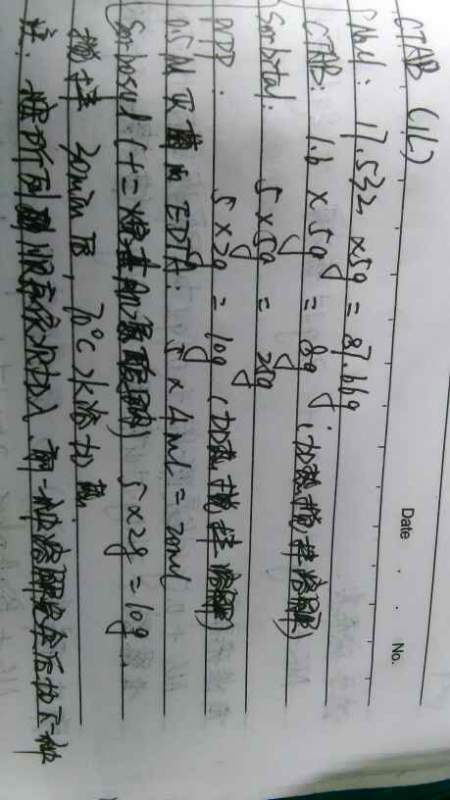 Date . . No.
CTAB (1L)
NaCl: 17.532 x5g = 87.66g
CTAB: 1.6 x 5g = 8g (加热搅拌溶解)
Sorbital: 5 x5g = 25g
PVP: 5 x2g = 10g (加热搅拌溶解)
0.5M 灭菌的EDTA: 5 x 4ml = 20ml
Sarkosyl (十二烷基肌氨酸钠) 5 x2g = 10g.
搅拌 30min 后, 70℃ 水浴加热
注: 按所列顺序依次加入, 前一种溶解完全后加下一种